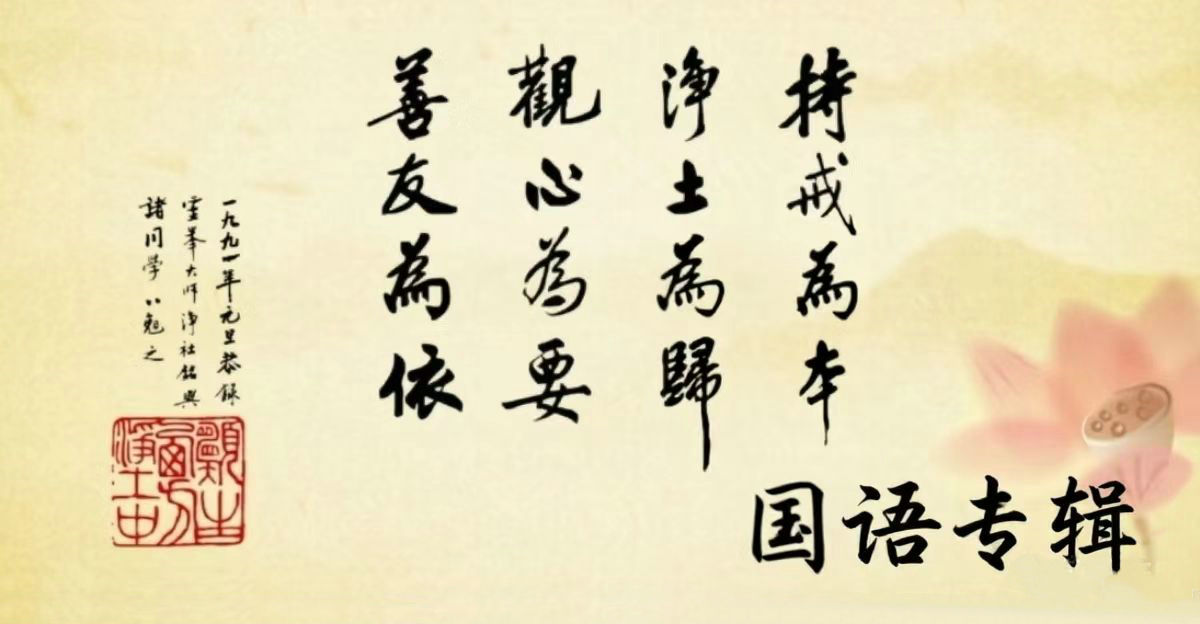 持戒為本
淨土為歸
觀心為要
善友為依
一九九一年元旦恭録
靈峯大师淨社銘與
諸同学以勉之
願生
西方
淨土中
国语专辑